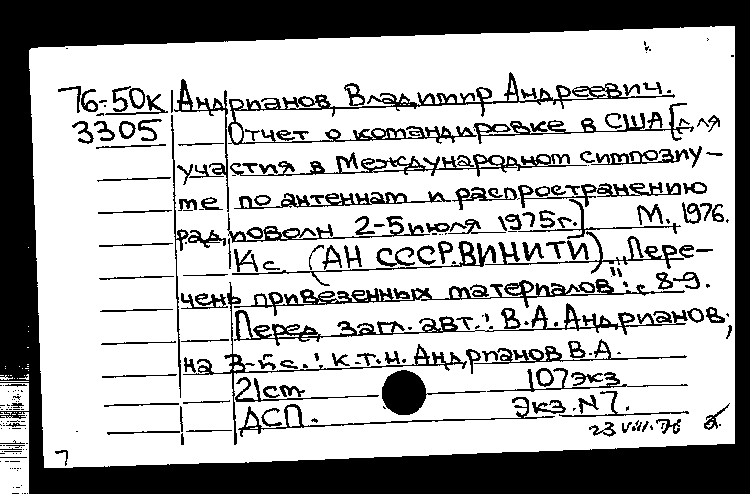 76-50к Андрианов, Владимир Андреевич.
3305 Отчет о командировке в США [для
участия в Международном симпозиу-
ме по антеннам и распространению
радиоволн 2-5 июля 1975г.]. М., 1976.
14с. (АН СССР. ВИНИТИ). „Пере-
чень привезенных материалов": с. 8-9.
Перед загл. авт.: В.А. Андрианов;
на 3-й с.: к.т.н. Андрианов В.А.
21см. 107экз.
ДСП. Экз. N7.
23 VIII. 76
7